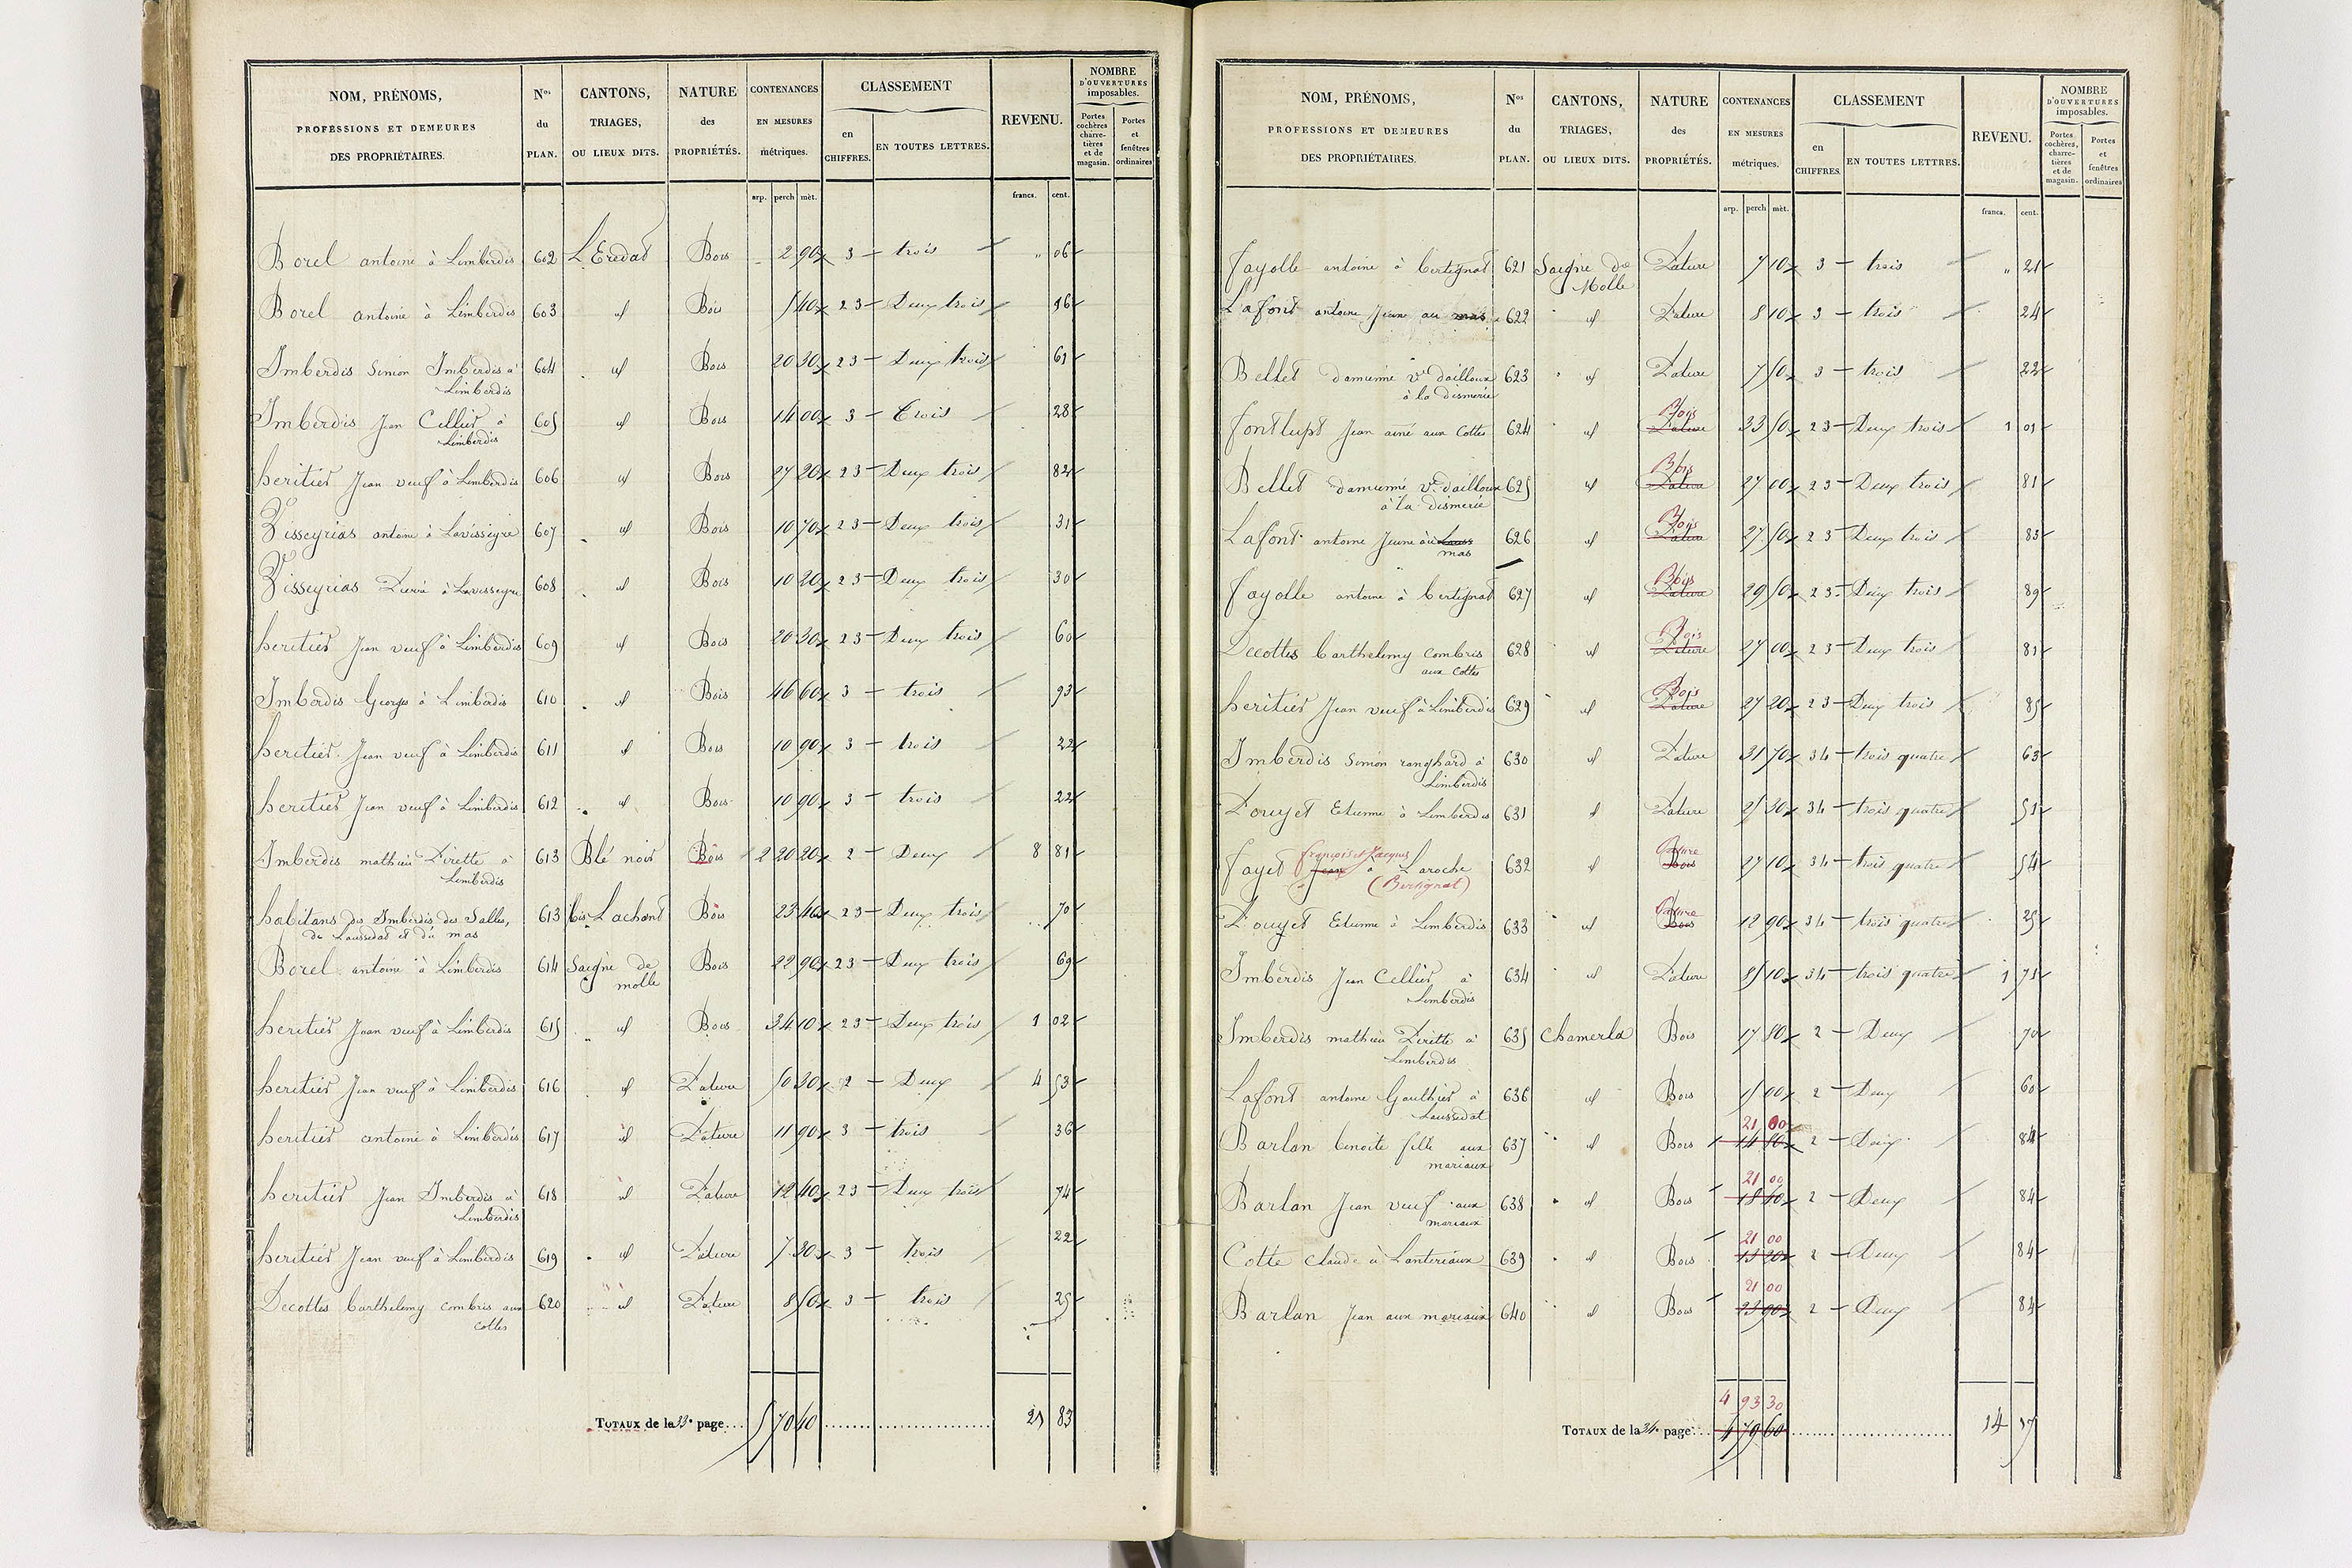 NOM, PRÉNOMS, PROFESSIONS ET DEMEURES DES PROPRIÉTAIRES.
Nos du PLAN.
CANTONS, TRIAGES, OU LIEUX DITS.
NATURE des PROPRIÉTÉS.
CONTENANCES EN MESURES métriques.
CLASSEMENT
en CHIFFRES.
EN TOUTES LETTRES.
REVENU.
NOMBRE D'OUVERTURES imposables.
Portes cochères charretières et de magasin.
Portes et fenêtres ordinaires
arp. perch mèt. francs. cent.
Borel antoine à Limberdis 602 L'Eredat Bois 2 90 3 trois " 06
Borel antoine à Limberdis 603 id Bois 5 40 23 Deux trois 16
Imberdis Simon Imberdis à 604 id Bois 20 30 23 Deux trois 61
Limberdis
Imberdis Jean Cellier à 605 id Bois 14 00 3 Trois 28
Limberdis
heritier Jean veuf à Limberdis 606 id Bois 27 20 23 Deux trois 82
Visseyrias antoine à Lavisseyre 607 id Bois 10 70 23 Deux trois 31
Visseyrias Pierre à Lavisseyre 608 id Bois 10 20 23 Deux trois 30
heritier Jean veuf à Limberdis 609 id Bois 20 30 23 Deux trois 60
Imberdis Georges à Limberdis 610 id Bois 46 60 3 trois 93
heritier Jean veuf à Limberdis 611 id Bois 10 90 3 trois 22
heritier Jean veuf à Limberdis 612 id Bois 10 90 3 trois 22
Imberdis mathieu Pirette à 613 Blé noir Bois 2 20 20 2 Deux 8 81
Limberdis
habitans des Imberdis, des Salles, 613 bis Lachant Bois 23 40 23 Deux trois 70
de Laussedat et du mas
Borel antoine à Limberdis 614 Saigne de molle Bois 22 90 23 Deux trois 69
heritier Jean veuf à Limberdis 615 id Bois 34 10 23 Deux trois 1 02
heritier Jean veuf à Limberdis 616 id Pature 50 30 2 Deux 4 53
heritier antoine à Limberdis 617 id Pature 11 90 3 trois 36
heritier Jean Imberdis à 618 id Pature 12 40 23 Deux trois 74
Limberdis
heritier Jean veuf à Limberdis 619 id Pature 7 30 3 trois 22
Decottes barthelemy combris aux 620 id Pature 8 50 3 trois 25
cottes
TOTAUX de la 33e page.... 5 70 40 ........ 21 83
NOM, PRÉNOMS, PROFESSIONS ET DEMEURES DES PROPRIÉTAIRES.
Nos du PLAN.
CANTONS, TRIAGES, OU LIEUX DITS.
NATURE des PROPRIÉTÉS.
CONTENANCES EN MESURES métriques.
CLASSEMENT
en CHIFFRES.
EN TOUTES LETTRES.
REVENU.
NOMBRE D'OUVERTURES imposables.
Portes cochères, charretières et de magasin.
Portes et fenêtres ordinaires
arp. perch mèt. francs. cent.
Fayolle antoine à bertignat 621 Saigne de Molle Pature 7 10 3 trois " 21
Lafont antoine Jeune au mas 622 id Pature 8 10 3 trois 24
Bellet damienne ve dailloux 623 id Pature 7 50 3 trois 22
à la dismerie
fontlupt Jean ainé aux Cottes 624 id Pature Bois 33 50 23 Deux trois 1 01
Bellet damienne ve dailloux 625 id Pature Bois 27 00 23 Deux trois 81
à la dismerie
Lafont antoine Jeune au mas 626 id Pature Bois 27 50 23 Deux trois 83
Fayolle antoine à bertignat 627 id Pature Bois 29 50 23 Deux trois 89
Decottes barthelemy combris 628 id Pature Bois 27 00 23 Deux trois 81
aux Cottes
heritier Jean veuf à Limberdis 629 id Pature Bois 27 20 23 Deux trois 85
Imberdis Simon ranghard à 630 id Pature 31 70 34 trois quatre 63
Limberdis
Pouyet Etienne à Limberdis 631 id Pature 25 30 34 trois quatre 51
Fayet Jean françois et Jacques à Laroche 632 id Bois Pature 27 10 34 trois quatre 54
(Bertignat)
Pouyet Etienne à Limberdis 633 id Bois Pature 12 90 34 trois quatre 25
Imberdis Jean Cellier à 634 id Pature 85 10 34 trois quatre 1 75
Limberdis
Imberdis mathieu Pirette à 635 Chamerla Bois 17 80 2 Deux 70
Limberdis
Lafont antoine Gauthier à 636 id Bois 15 00 2 Deux 60
Laussedat
Barlan benoite fille aux 637 id Bois 14 80 21 00 2 Deux 84
mariaux
Barlan Jean veuf aux 638 id Bois 18 60 21 00 2 Deux 84
mariaux
Cotte Claude à Lanteriaux 639 id Bois 13 20 21 00 2 Deux 84
Barlan Jean aux mariaux 640 id Bois 23 90 21 00 2 Deux 84
4 93 30
TOTAUX de la 34e page... 4 79 60 ........ 14 17